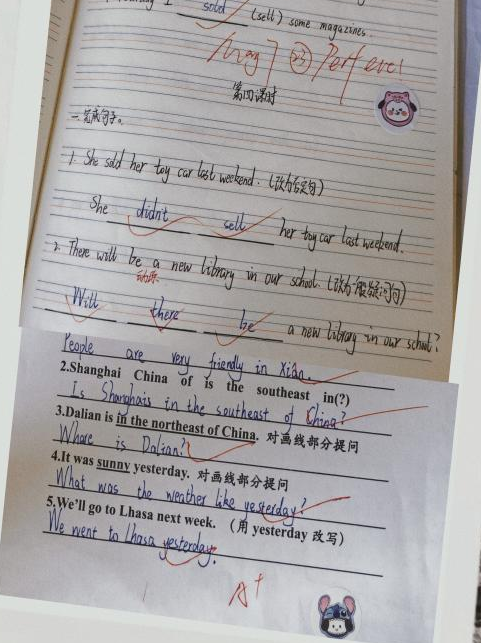 I sold (sell) some magazines.
May 7 Perfect!
第四课时
一、完成句子。
1. She sold her toy car last weekend. (改为否定句)
She didn't sell her toy car last weekend.
2. There will be a new library in our school. (改为一般疑问句)
动原
Will there be a new library in our school?
People are very friendly in Xi'an.
2.Shanghai China of is the southeast in(?)
Is Shanghais in the southeast of China?
3.Dalian is in the northeast of China. 对画线部分提问
Where is Dalian?
4.It was sunny yesterday. 对画线部分提问
What was the weather like yesterday?
5.We'll go to Lhasa next week. （用 yesterday 改写）
We went to Lhasa yesterday.
A+